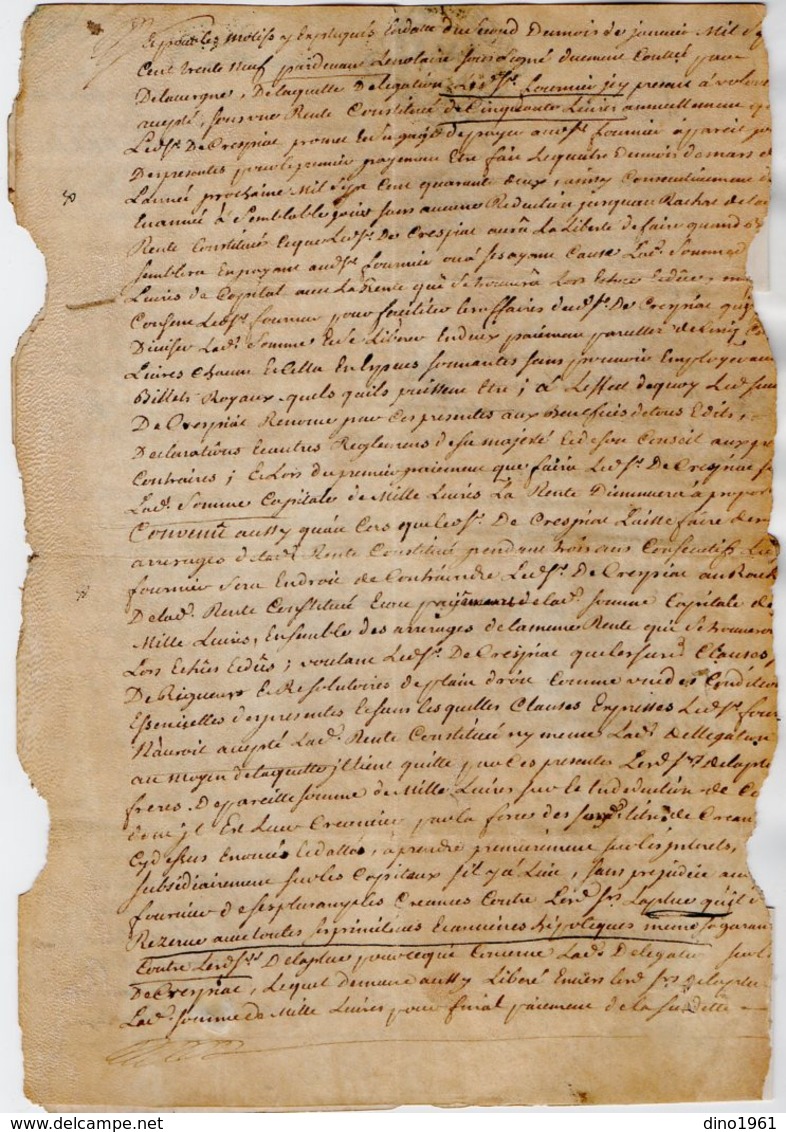 Et pour les motifs y Expliqués En datte du second Du mois de janvier Mil S
Cent trente neuf pardevant Le notaire soussigné duement Controllé par
Delauvergne, De laquelle Delegation Led. Sr. Fournier jcy present a volon
accepté, sous une Rente Constitué de Cinquante Livres annuellement q
Led. Sr. De Crespiat promet Et s'engage de payer aud. Sr. fournier à pareil jour
Des presentes pour le premier payement Etre fait Le quatre du mois de mars d
L'année prochaine Mil Sept Cent quarante deux, ainsy Consecutivement d
En année à Semblable jour sans aucune Reduction jusquau Rachat de lad
Rente Constitué Ce que Led. Sr. De Crespiat aura La Liberté de faire quand
semblera En payant aud. Sr. fournier ou à ses ayant Cause Lad. Somme d
Livres de Capital avec La Rente qui Se trouvera Lors Echue Et düe,
Consent Led. Sr. fournier pour faciliter les affaires dud. Sr. De Crespiat qu'il
Divise Lad. Somme Et Se Libere En deux paiemens par eller de Cinq C
Livres Chacun Et Cella En Especes sonnantes sans pouvoir Employer aucun
Billets Royaux quels quils puissent Etre; à L'effet de quoy Led. Sieur
De Crespiat Renonce par Ces presentes aux Benefices de tous Edits,
Declarations Et autres Reglemens de sa majesté Et de son Conseil aux pr
Contraires; Et Lors du premier paiement que faira Led. Sr. De Crespiat
Lad. Somme Capitale de Mille Livres La Rente Diminuera à propor
Convenu aussy qu'au Cas que led. Sr. De Crespiat Laisse faire de
arrerages de lad. Rente Constitué pendant trois ans Consecutifs Led
fournier Sera En droit de Contraindre Led. Sr. De Crespiat au Rach
De lad. Rente Constitué Et au paiement de lad. somme Capitale de
Mille Livres, Ensemble des arrerages de la meme Rente qui Se trouveron
Lors Echüs Et düs; voulant Led. Sr. De Crespiat que les susd. Clauses
De Rigueur Et Resolutoires de plain droit Comme une des Condition
Essencielles des presentes Et sans lesquelles Clauses Expresses Led. Sr. four
N'auroit accepté Lad. Rente Constitué ny meme Lad. Dellegation
au moyen de laquelle jl tient quitte par Ces presentes Lesd. Srs. Delaplu
freres. De pareille somme de Mille Livres sur Et En deduction de Ce
dont jl Est Leur Creancier par la force des susd. titres de Crean
Cy dessus Enoncés Et dattés, à prendre premierement sur les jnterets,
subsidiairement sur les Capitaux s'il y à Lieu, sans prejudice au
fournier de ses plus amples Creances Contre Lesd. Srs. Laplue qu'il s
Rezerve avec toutes ses primitives Et anciennes hipoteques meme sa garan
Contre Lesd. Srs. Delaplue pour ce qui Concerne Lad. Delegation sur l
De Crespiat, Lequel demeure aussy Liberé Envers lesd. Srs. delaplu
Lad. somme de Mille Livres pour final paiement de la susditte